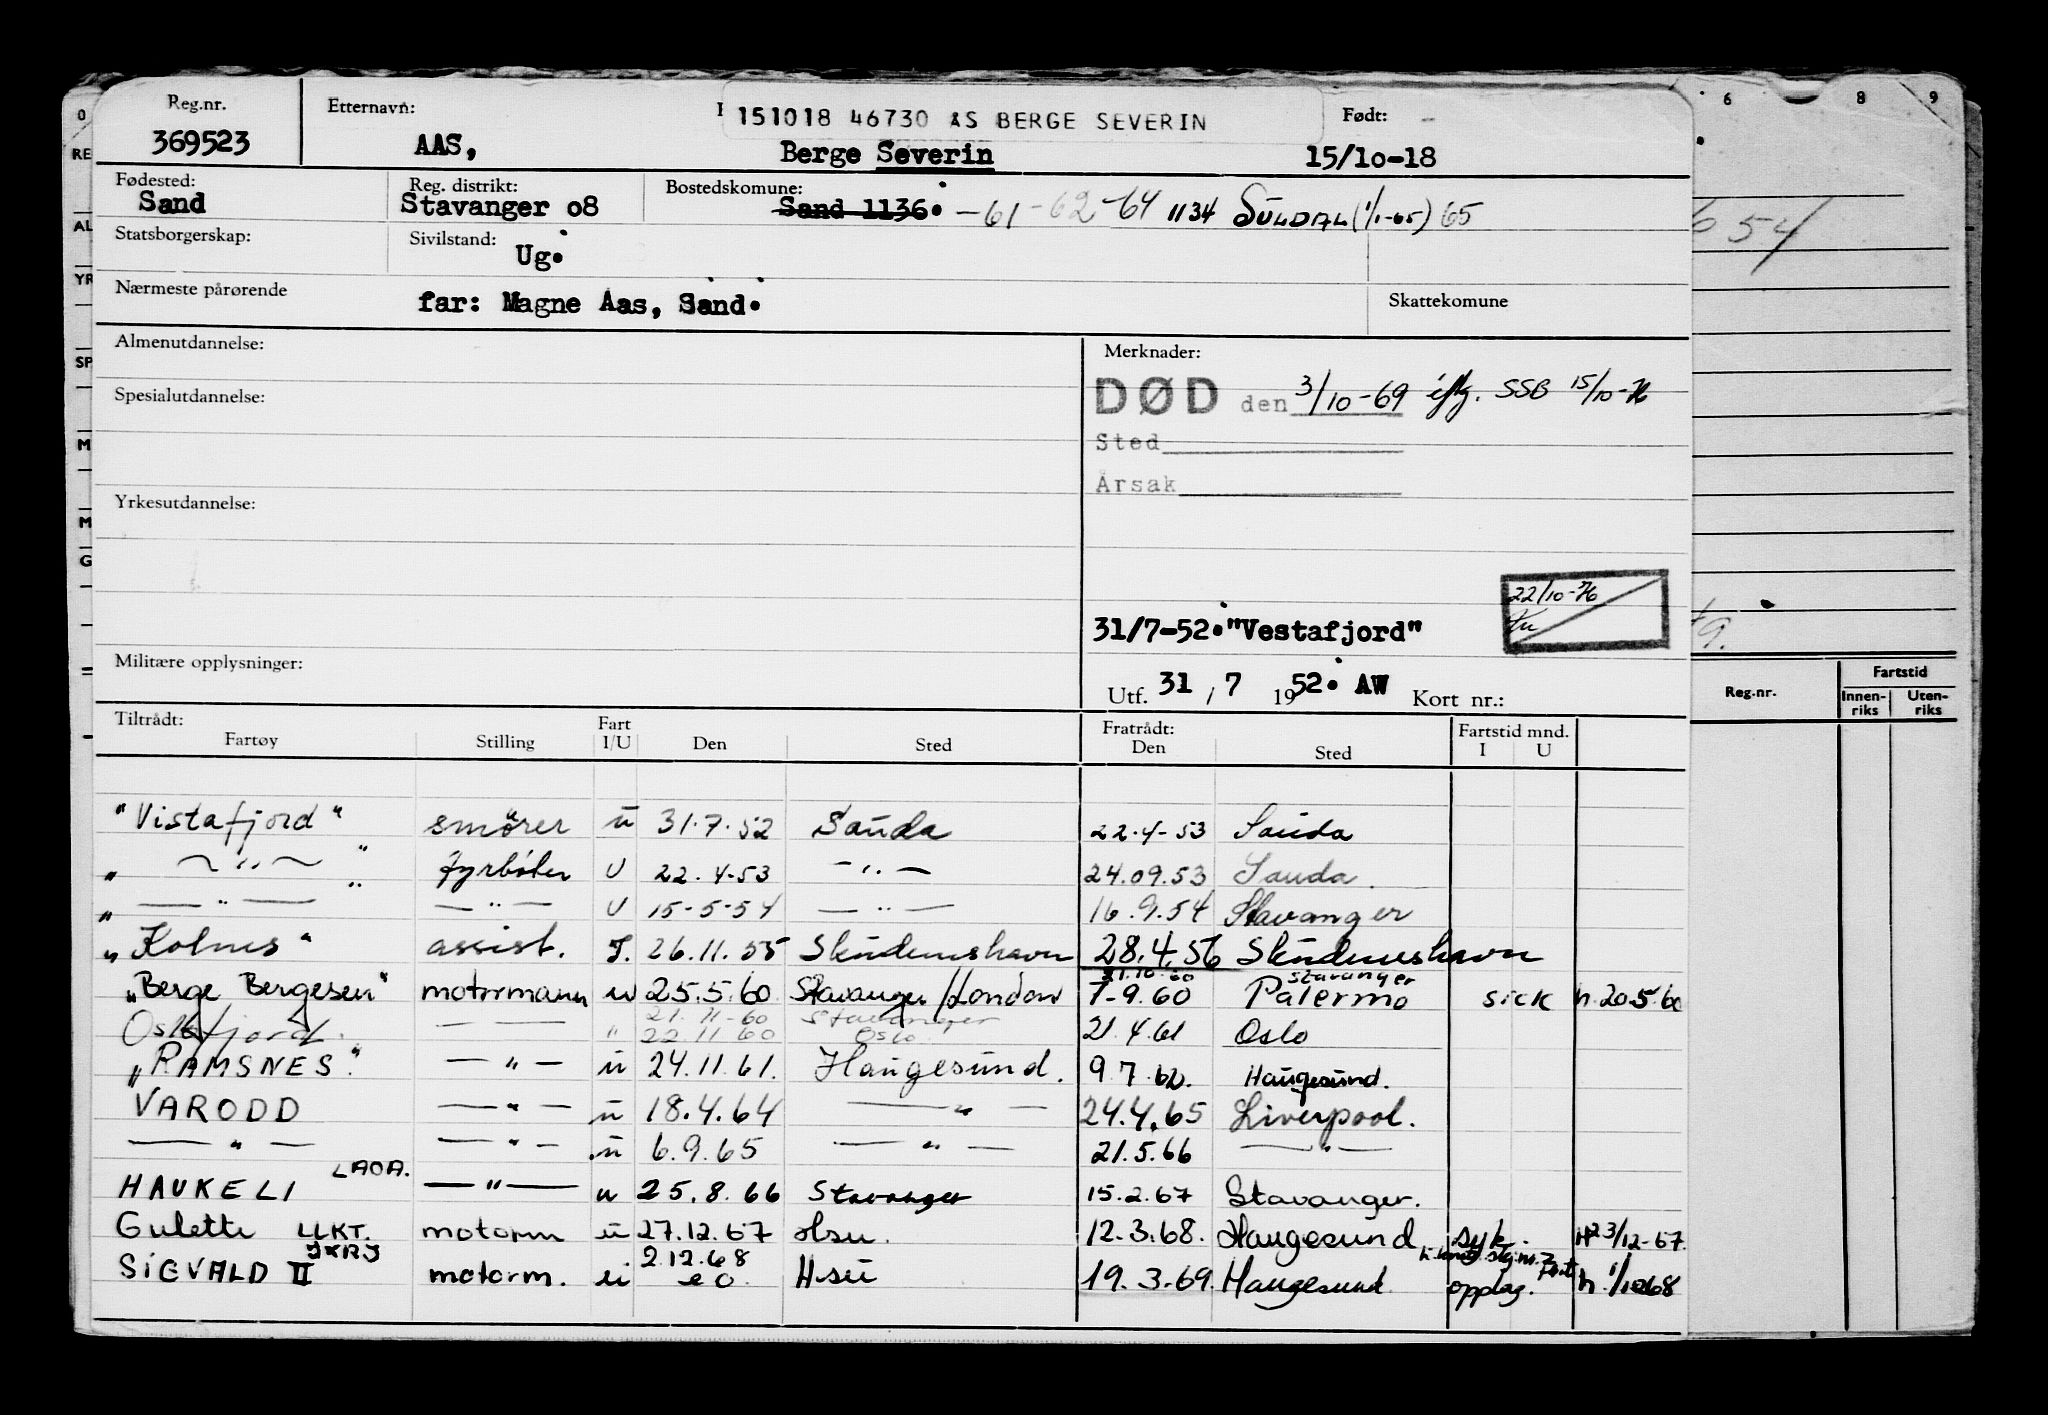 Reg.nr. Etternavn: 151018 46730 AS BERGE SEVERIN Født:
369523 AAS, Berge Severin 15/10-18
Fødested: Reg. distrikt: Bostedskomune:
Sand Stavanger 08 Sand 1136. -61 -62 -64 1134 SULDAL (1/1-65) 65
Statsborgerskap: Sivilstand:
Ug.
Nærmeste pårørende far: Magne Aas, Sand. Skattekomune
Almenutdannelse: Merknader:
DØD den 3/10-69 SSB 15/10-76
Spesialutdannelse:
Sted
Årsak
Yrkesutdannelse:
22/10-76
31/7-52."Vestafjord"
Militære opplysninger:
Utf. 31 / 7 1952. AW Kort nr.:
Tiltrådt: Fart Fratrådt: Fartstid mnd.
Fartøy Stilling I/U Den Sted Den Sted I U
"Vistafjord" smører u 31.7.52 Sauda 22.4-53 Sauda
" — " — " fyrbøter U 22.4-53 — " — 24.09.53 Sauda.
" — " — " — " — U 15-5-54 — " — 16.9.54 Stavanger
"Kolnes" assist. I. 26.11.55 Skudeneshavn 28.4.56 Skudeneshavn
21.10.60 Stavanger
"Berge Bergesen" motormann u 25.5.60 Stavanger/London 7-9.60 Palermo sick h.20.5.60
21.11-60 Stavanger
Oslofjord. — — " 22.11 60 Oslo 21.4.61 Oslo
"RAMSNES." — " — u 24.11.61. Haugesund. 9.7.62. Haugesund.
VARODD — " — u 18.4.64 — " — 24.4.65 Liverpool.
— " — — " — u 6.9.65 — " — 21.5.66 — " —
LAOA.
HAUKELI — " — u 25.8.66 Stavanger 15.2.67 Stavanger.
Gulette LLKT. motorm u 27.12.67 Hsu. 12.3.68. Haugesund syk. H 23/12-67.
JXRJ 2.12.68
SIGVALD II motorm. u Hsu 19.3-69. Haugesund opplag.
0
RE
AL
YR
SP
M
M
G
6 8 9
54
9.
Reg.nr. Fartstid
Innen-riks Uten-riks